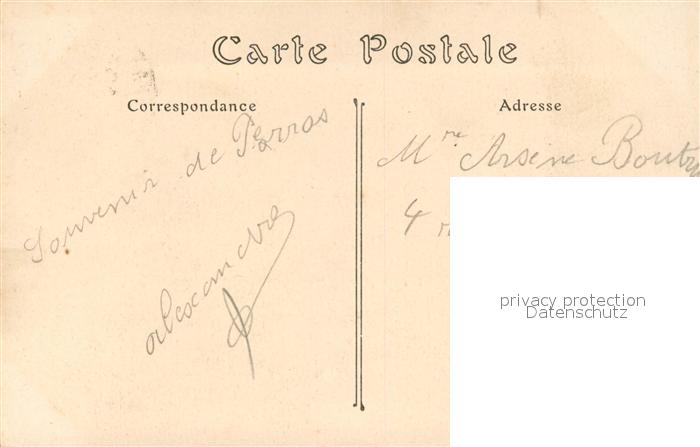 Carte Postale
Correspondance
Adresse
Souvenir de Perros
alexandre
Mme Arsène
4
privacy protection
Datenschutz